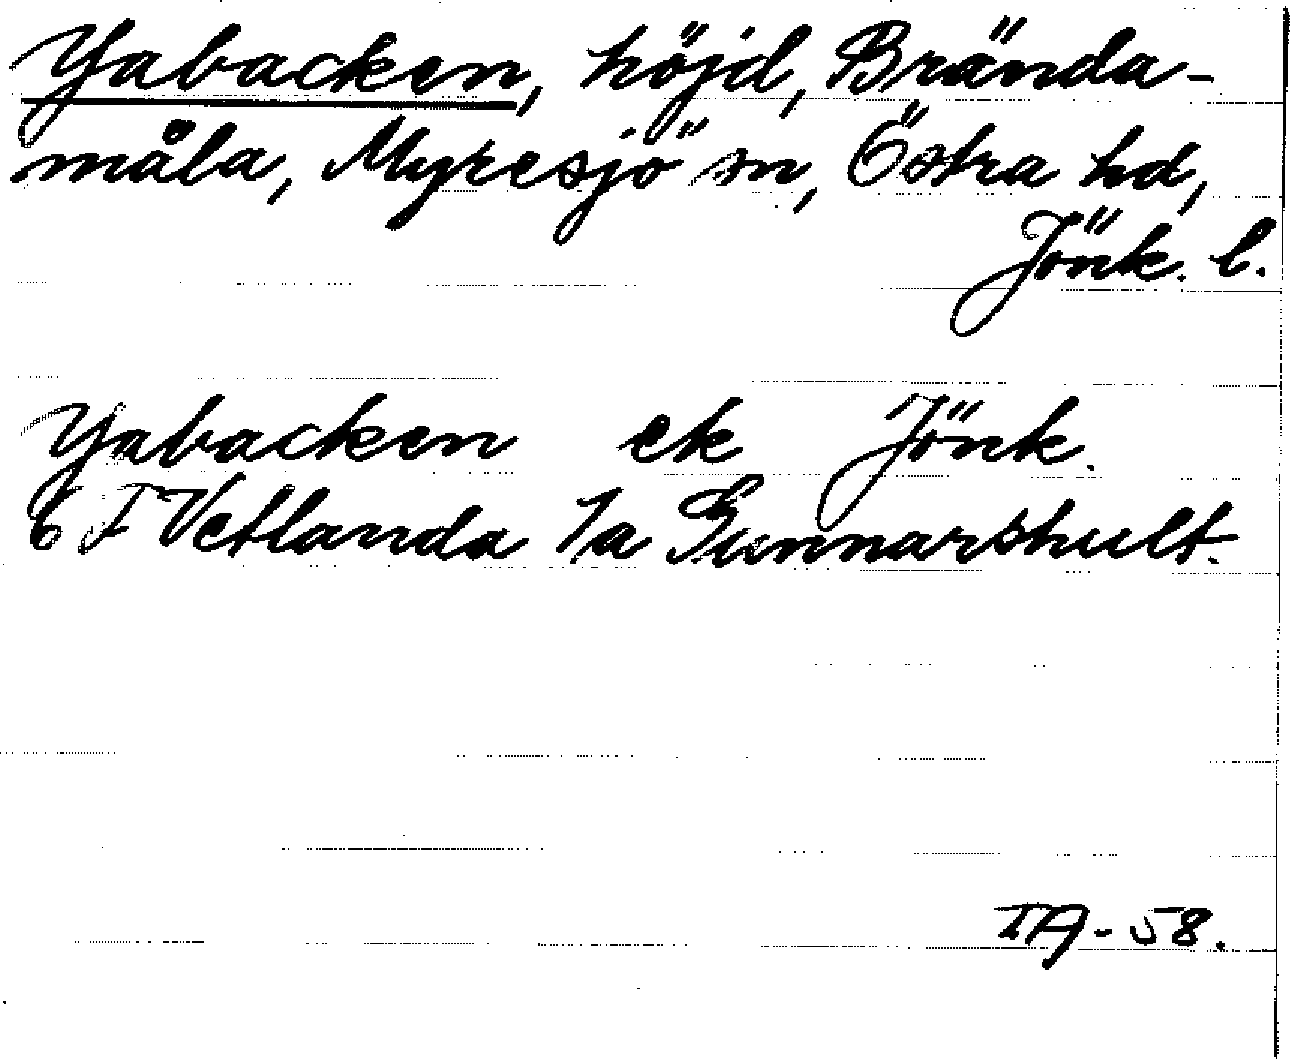 Yabacken, höjd, Brända-
måla, Myresjö sn, Östra hd,
Jönk. l.
Yabacken ek Jönk.
6 F Vetlanda 7a Gunnarshult.
IA-58.